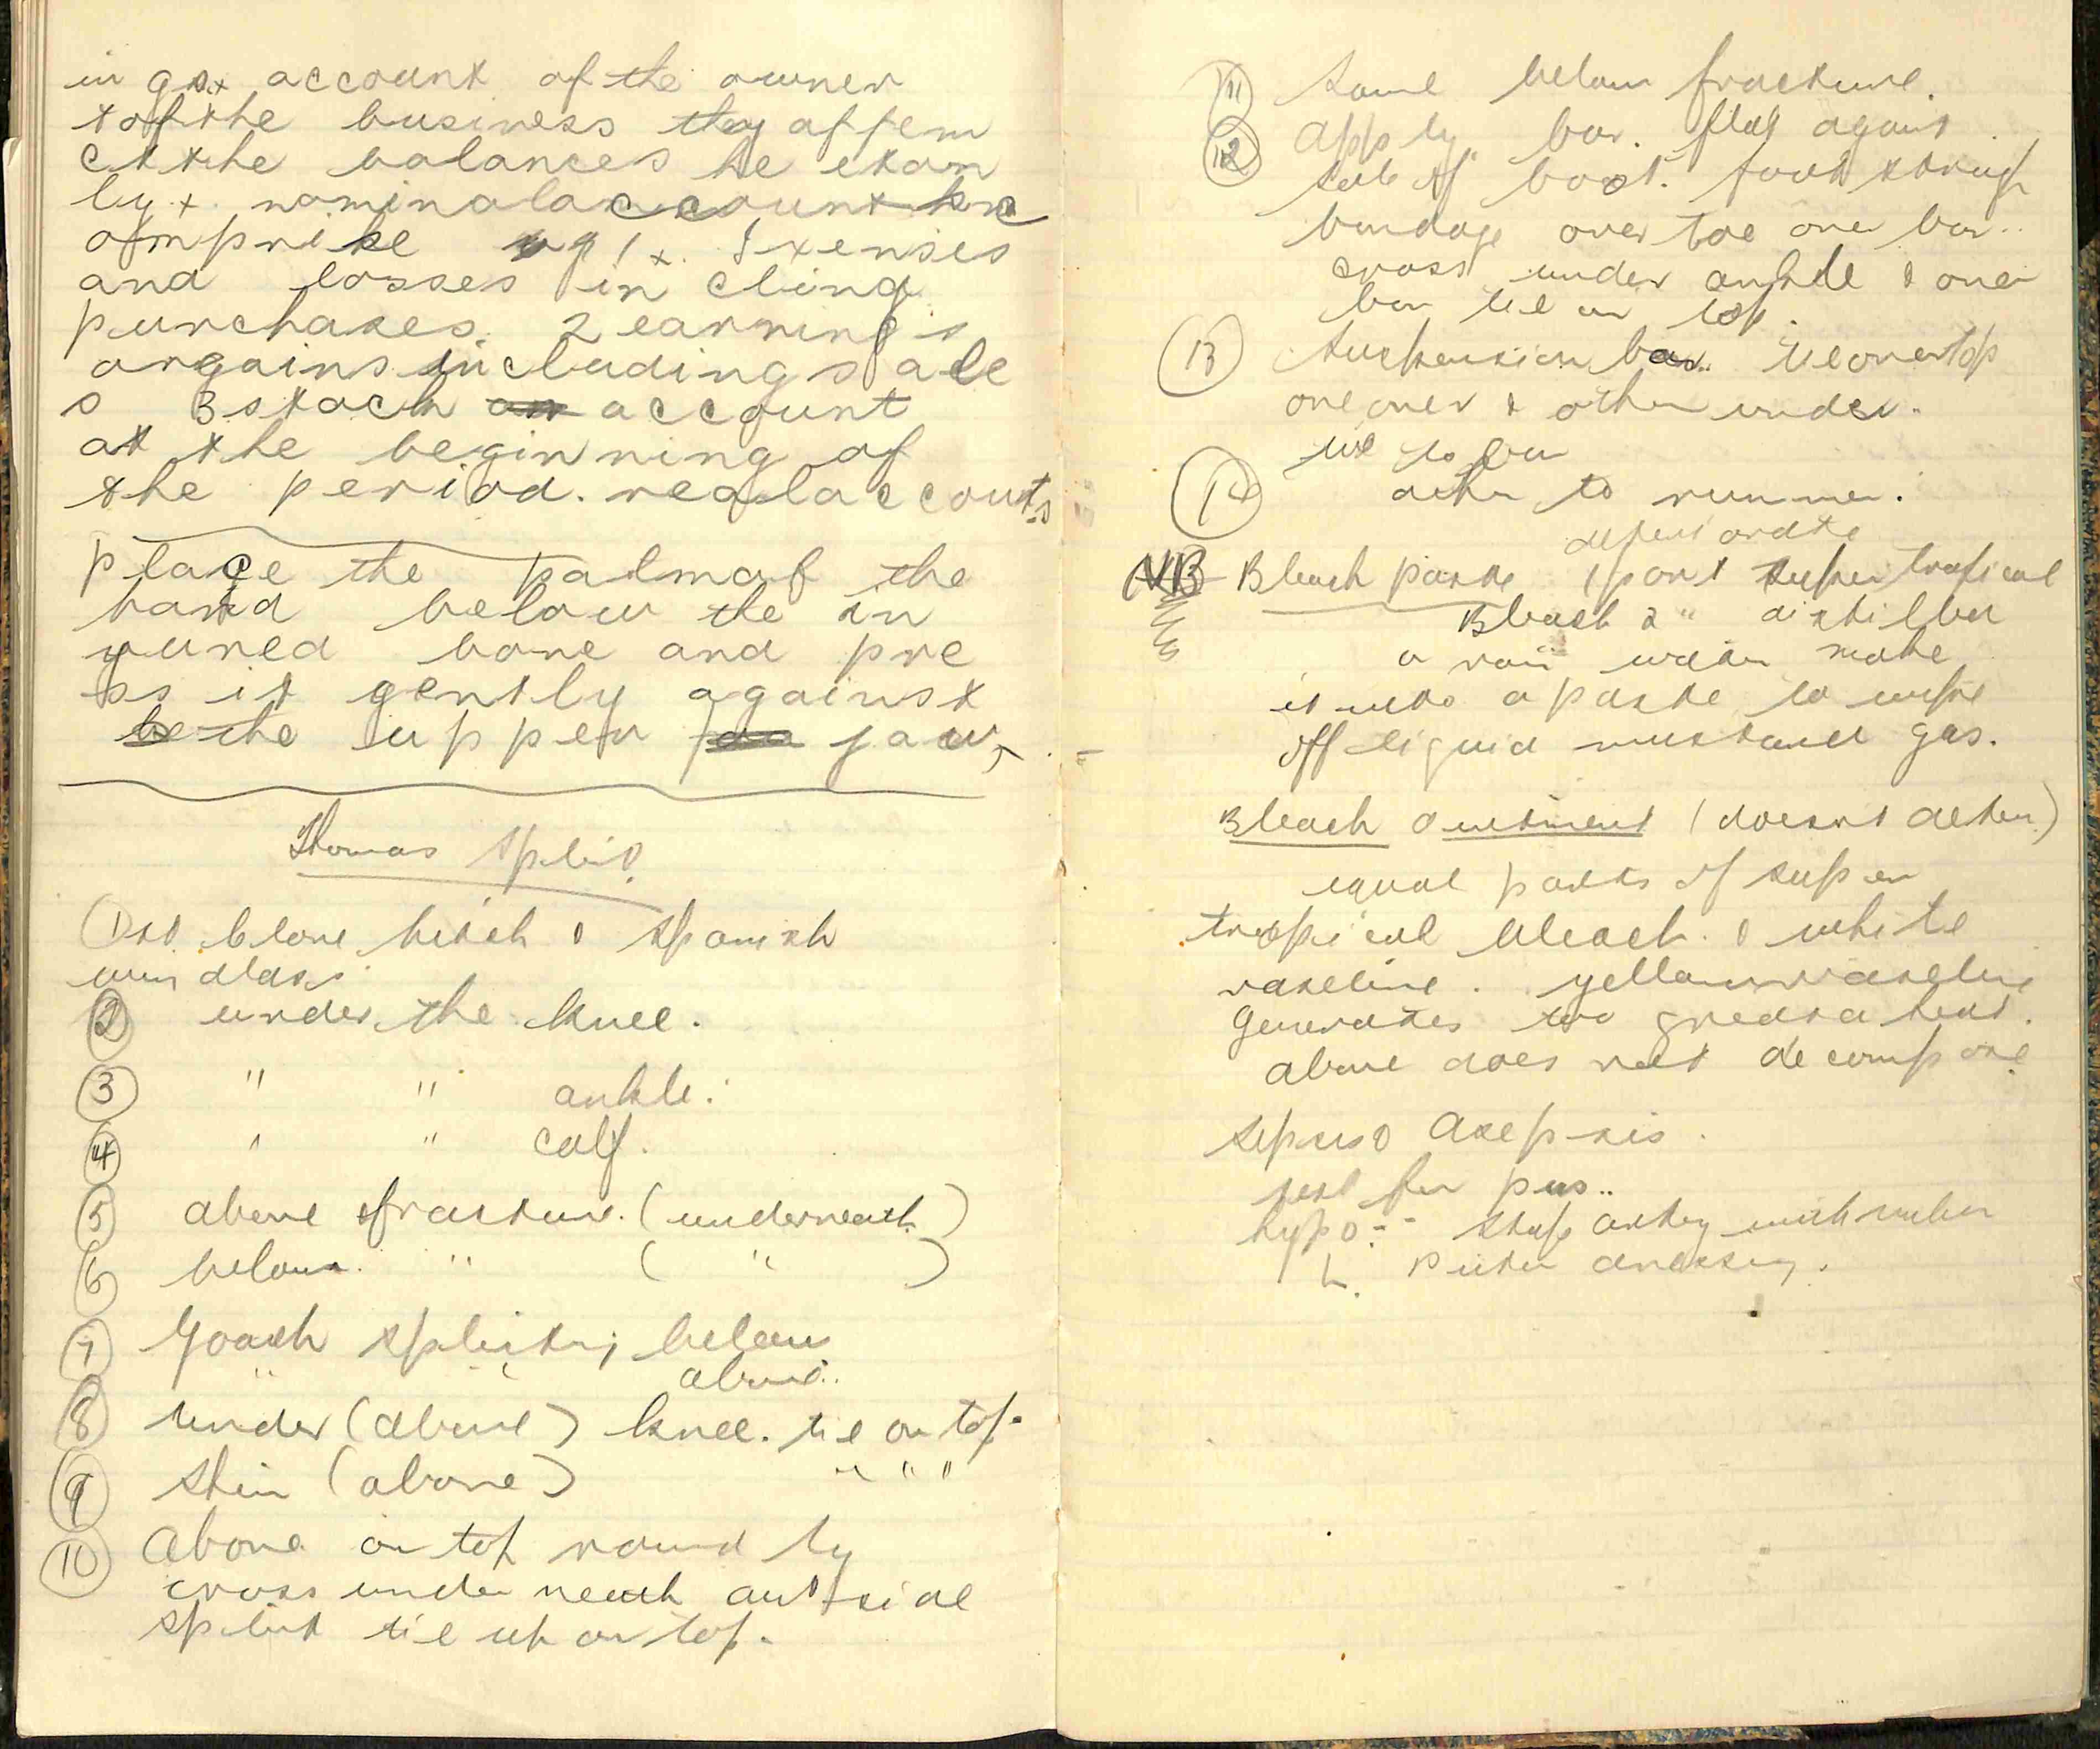 account of the owner
of the business they affem
ct the balances he exan
ly. nominal account hnc
omprise 1. Exenses
and losses in cling
purchases. 2 earning s
orgains including s ale
s 3 stock account
at the beginning of
the period. real accounts
place the palm of the
hand below the in
jured bone and pre
ss it gently against
the upper jaw,
Thomas Splint
(1) clove hitch & Spanish
windlass.
(2) under the knee.
(3) " " ankle.
(4) " " calf.
(5) above fracture. (underneath)
(6) below. " ( " )
(7) Gooch splints, below
" " above..
(8) under (above) knee. tie on top.
(9) shin (above) " " "
(10) above on top round by
cross under neath outside
splint tie up on top.
(11) Same below fracture.
(12) apply bar. flat against
sole of boot. foot
bandage over toe over bar..
cross under ankle & over
bar tie on top.
(13) Suspension bar.. tie over top
one over & other under.
tie to bar
(14) other to runner.
NB Bleach paste 1 part super tropical
Bleach 2 "
or rain water make
it into a paste to wipe
off liquid mustard gas.
Bleach Ointment (doesnt alter)
equal parts of super
tropical bleach. & white
vaseline. yellow vaseline
generates too great a heat.
above does not decompose
sepsis & Asepsis.
test for pus..
hypo:- stop artery with
dressing.